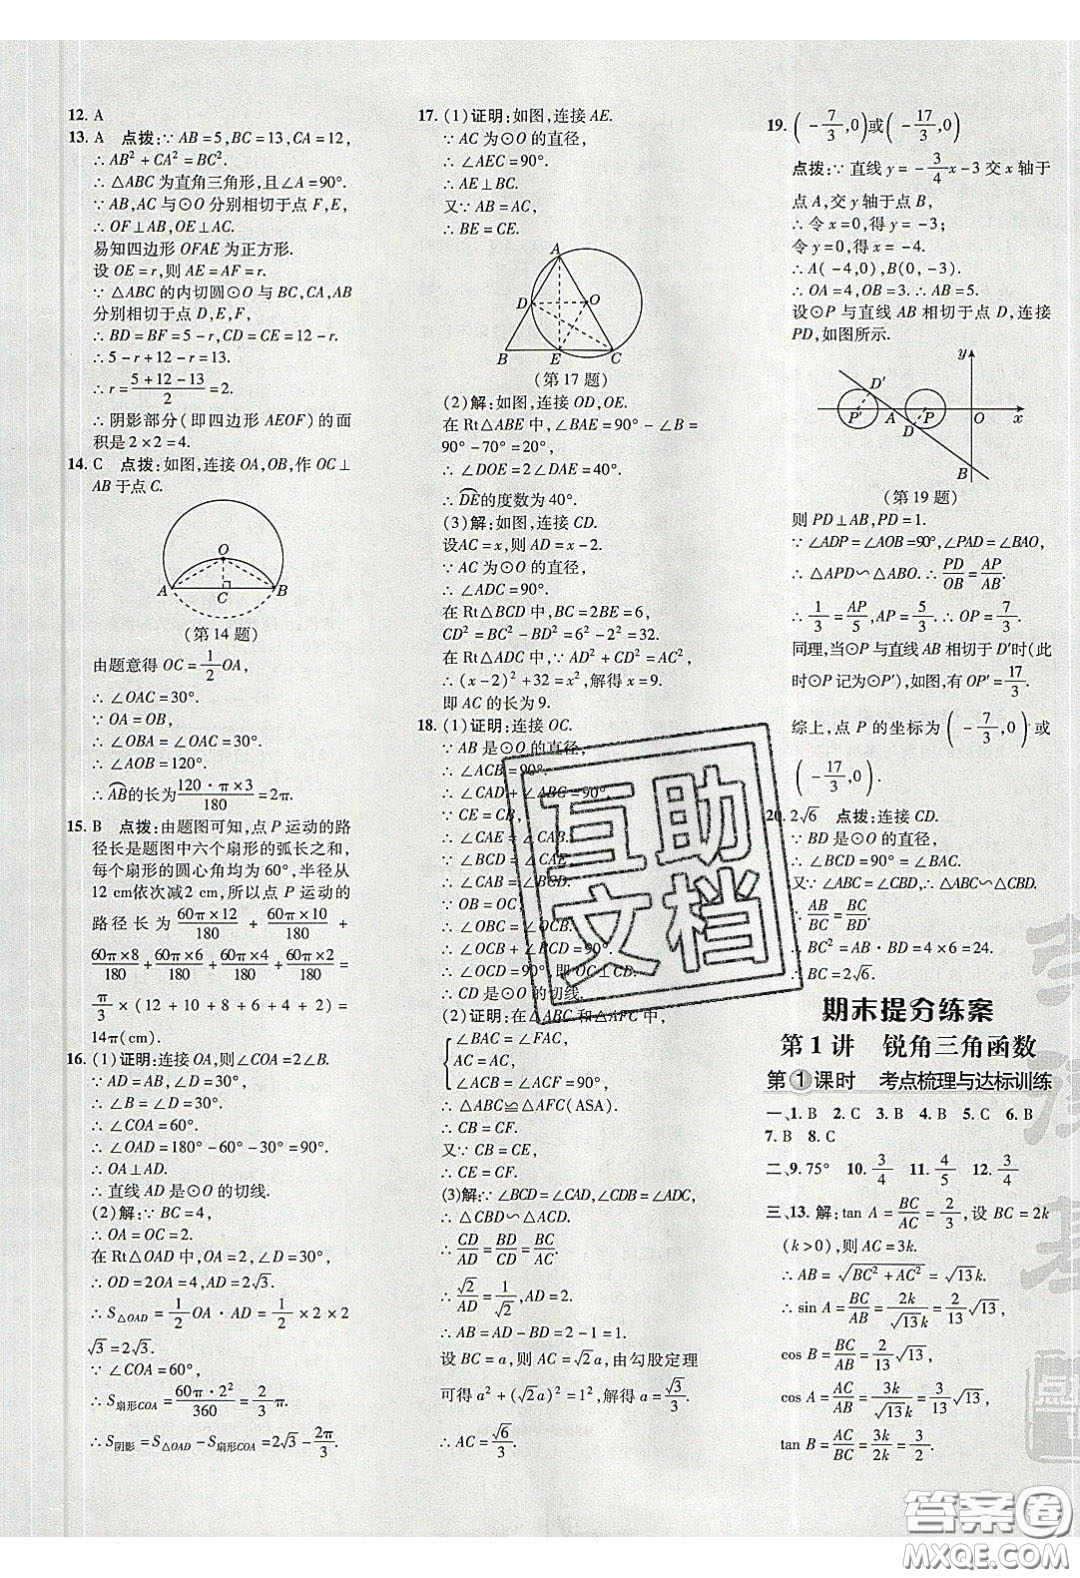 12. A
13. A　点拨:∵ AB=5,BC=13,CA=12,
∴ AB²+CA²=BC².
∴ △ABC 为直角三角形,且∠A=90°.
∵ AB,AC 与⊙O 分别相切于点 F,E,
∴ OF⊥AB,OE⊥AC.
易知四边形 OFAE 为正方形.
设 OE=r,则 AE=AF=r.
∵ △ABC 的内切圆⊙O 与 BC,CA,AB
分别相切于点 D,E,F,
∴ BD=BF=5-r,CD=CE=12-r.
∴ 5-r+12-r=13.
∴ r=(5+12-13)/2=2.
∴ 阴影部分(即四边形 AEOF)的面
积是 2×2=4.
14. C　点拨:如图,连接 OA,OB,作 OC⊥
AB 于点 C.
O
A
C
B
(第 14 题)
由题意得 OC=1/2 OA,
∴ ∠OAC=30°.
∵ OA=OB,
∴ ∠OBA=∠OAC=30°.
∴ ∠AOB=120°.
∴ AB的长为 (120·π×3)/180=2π.
15. B　点拨:由题图可知,点 P 运动的路
径长是题图中六个扇形的弧长之和,
每个扇形的圆心角均为 60°,半径从
12 cm依次减2 cm,所以点 P 运动的
路径长为 (60π×12)/180+(60π×10)/180+
(60π×8)/180+(60π×6)/180+(60π×4)/180+(60π×2)/180=
π/3×(12+10+8+6+4+2)=
14π(cm).
16. (1)证明:连接 OA,则∠COA=2∠B.
∵ ∠D=2∠B,
∴ ∠B=∠D=30°.
∴ ∠COA=60°.
∴ ∠OAD=180°-60°-30°=90°.
∴ OA⊥AD.
∴ 直线 AD 是⊙O 的切线.
(2)解:∵ BC=4,
∴ OA=OC=2.
在 Rt△OAD 中,OA=2,∠D=30°,
∴ OD=2OA=4,AD=2√3.
∴ S△OAD=1/2 OA·AD=1/2×2×2
√3=2√3.
∵ ∠COA=60°,
∴ S扇形COA=(60π·2²)/360=2/3 π.
∴ S阴影=S△OAD-S扇形COA=2√3-2π/3.
17. (1)证明:如图,连接 AE.
∵ AC 为⊙O 的直径,
∴ ∠AEC=90°.
∴ AE⊥BC.
又∵ AB=AC,
∴ BE=CE.
A
D
O
B
E
C
(第 17 题)
(2)解:如图,连接 OD,OE.
在 Rt△ABE 中,∠BAE=90°-∠B=
90°-70°=20°.
∴ ∠DOE=2∠DAE=40°.
∴ DE的度数为 40°.
(3)解:如图,连接 CD.
设AC=x,则 AD=x-2.
∵ AC 为⊙O 的直径,
∴ ∠ADC=90°.
在 Rt△BCD 中,BC=2BE=6,
CD²=BC²-BD²=6²-2²=32.
在 Rt△ADC 中,∵ AD²+CD²=AC²,
∴ (x-2)²+32=x²,解得 x=9.
即 AC 的长为 9.
18. (1)证明:连接 OC.
∵ AB 是⊙O 的直径,
∴ ∠ACB=90°.
∴ ∠CAD+∠ABC=90°.
∵ CE=CB,
∴ ∠CAE=∠CAB.
∵ ∠BCD=∠CAE,
∴ ∠CAB=∠BCD.
∵ OB=OC,
∴ ∠OBC=∠OCB.
∴ ∠OCB+∠BCD=90°.
∴ ∠OCD=90°,即 OC⊥CD.
∴ CD 是⊙O 的切线.
(2)证明:在△ABC 和△AFC 中,
∠BAC=∠FAC,
AC=AC,
∠ACB=∠ACF,
∴ △ABC≌△AFC(ASA).
∴ CB=CF.
又∵ CB=CE,
∴ CE=CF.
(3)解:∵ ∠BCD=∠CAD,∠CDB=∠ADC,
∴ △CBD∽△ACD.
∴ CD/AD=BD/CD=BC/AC.
∴ √2/AD=1/√2,AD=2.
∴ AB=AD-BD=2-1=1.
设 BC=a,则 AC=√2a,由勾股定理
可得 a²+(√2a)²=1²,解得 a=√3/3.
∴ AC=√6/3.
19. (-7/3,0)或(-17/3,0)
点拨:∵ 直线 y=-3/4 x-3 交 x 轴于
点 A,交 y 轴于点 B,
∴ 令 x=0,得 y=-3;
令 y=0,得 x=-4.
∴ A(-4,0),B(0,-3).
∴ OA=4,OB=3.∴ AB=5.
设⊙P 与直线 AB 相切于点 D,连接
PD,如图所示.
y
D′
P′
A
D
P
O
x
B
(第 19 题)
则 PD⊥AB,PD=1.
∵ ∠ADP=∠AOB=90°,∠PAD=∠BAO,
∴ △APD∽△ABO.∴ PD/OB=AP/AB.
∴ 1/3=AP/5,AP=5/3.∴ OP=7/3.
同理,当⊙P 与直线 AB 相切于 D′时(此
时⊙P 记为⊙P′),如图,有 OP′=17/3.
综上,点 P 的坐标为(-7/3,0)或
(-17/3,0).
20. 2√6　点拨:连接 CD.
∵ BD 是⊙O 的直径,
∴ ∠BCD=90°=∠BAC.
又∵ ∠ABC=∠CBD,∴ △ABC∽△CBD.
∴ AB/BC=BC/BD.
∴ BC²=AB·BD=4×6=24.
∴ BC=2√6.
期末提分练案
第 1 讲　锐角三角函数
第①课时　考点梳理与达标训练
一、1. B　2. C　3. B　4. B　5. C　6. B
7. B　8. C
二、9. 75°　10. 3/4　11. 4/5　12. 3/4
三、13. 解:tan A=BC/AC=2/3,设 BC=2k
(k>0),则 AC=3k.
∴ AB=√(BC²+AC²)=√13k.
∴ sin A=BC/AB=2k/(√13k)=2/13 √13,
cos B=BC/AB=2/13 √13,
cos A=AC/AB=3k/(√13k)=3/13 √13,
tan B=AC/BC=3k/2k=3/2.
互助
文档
答案圈
MXQE.COM